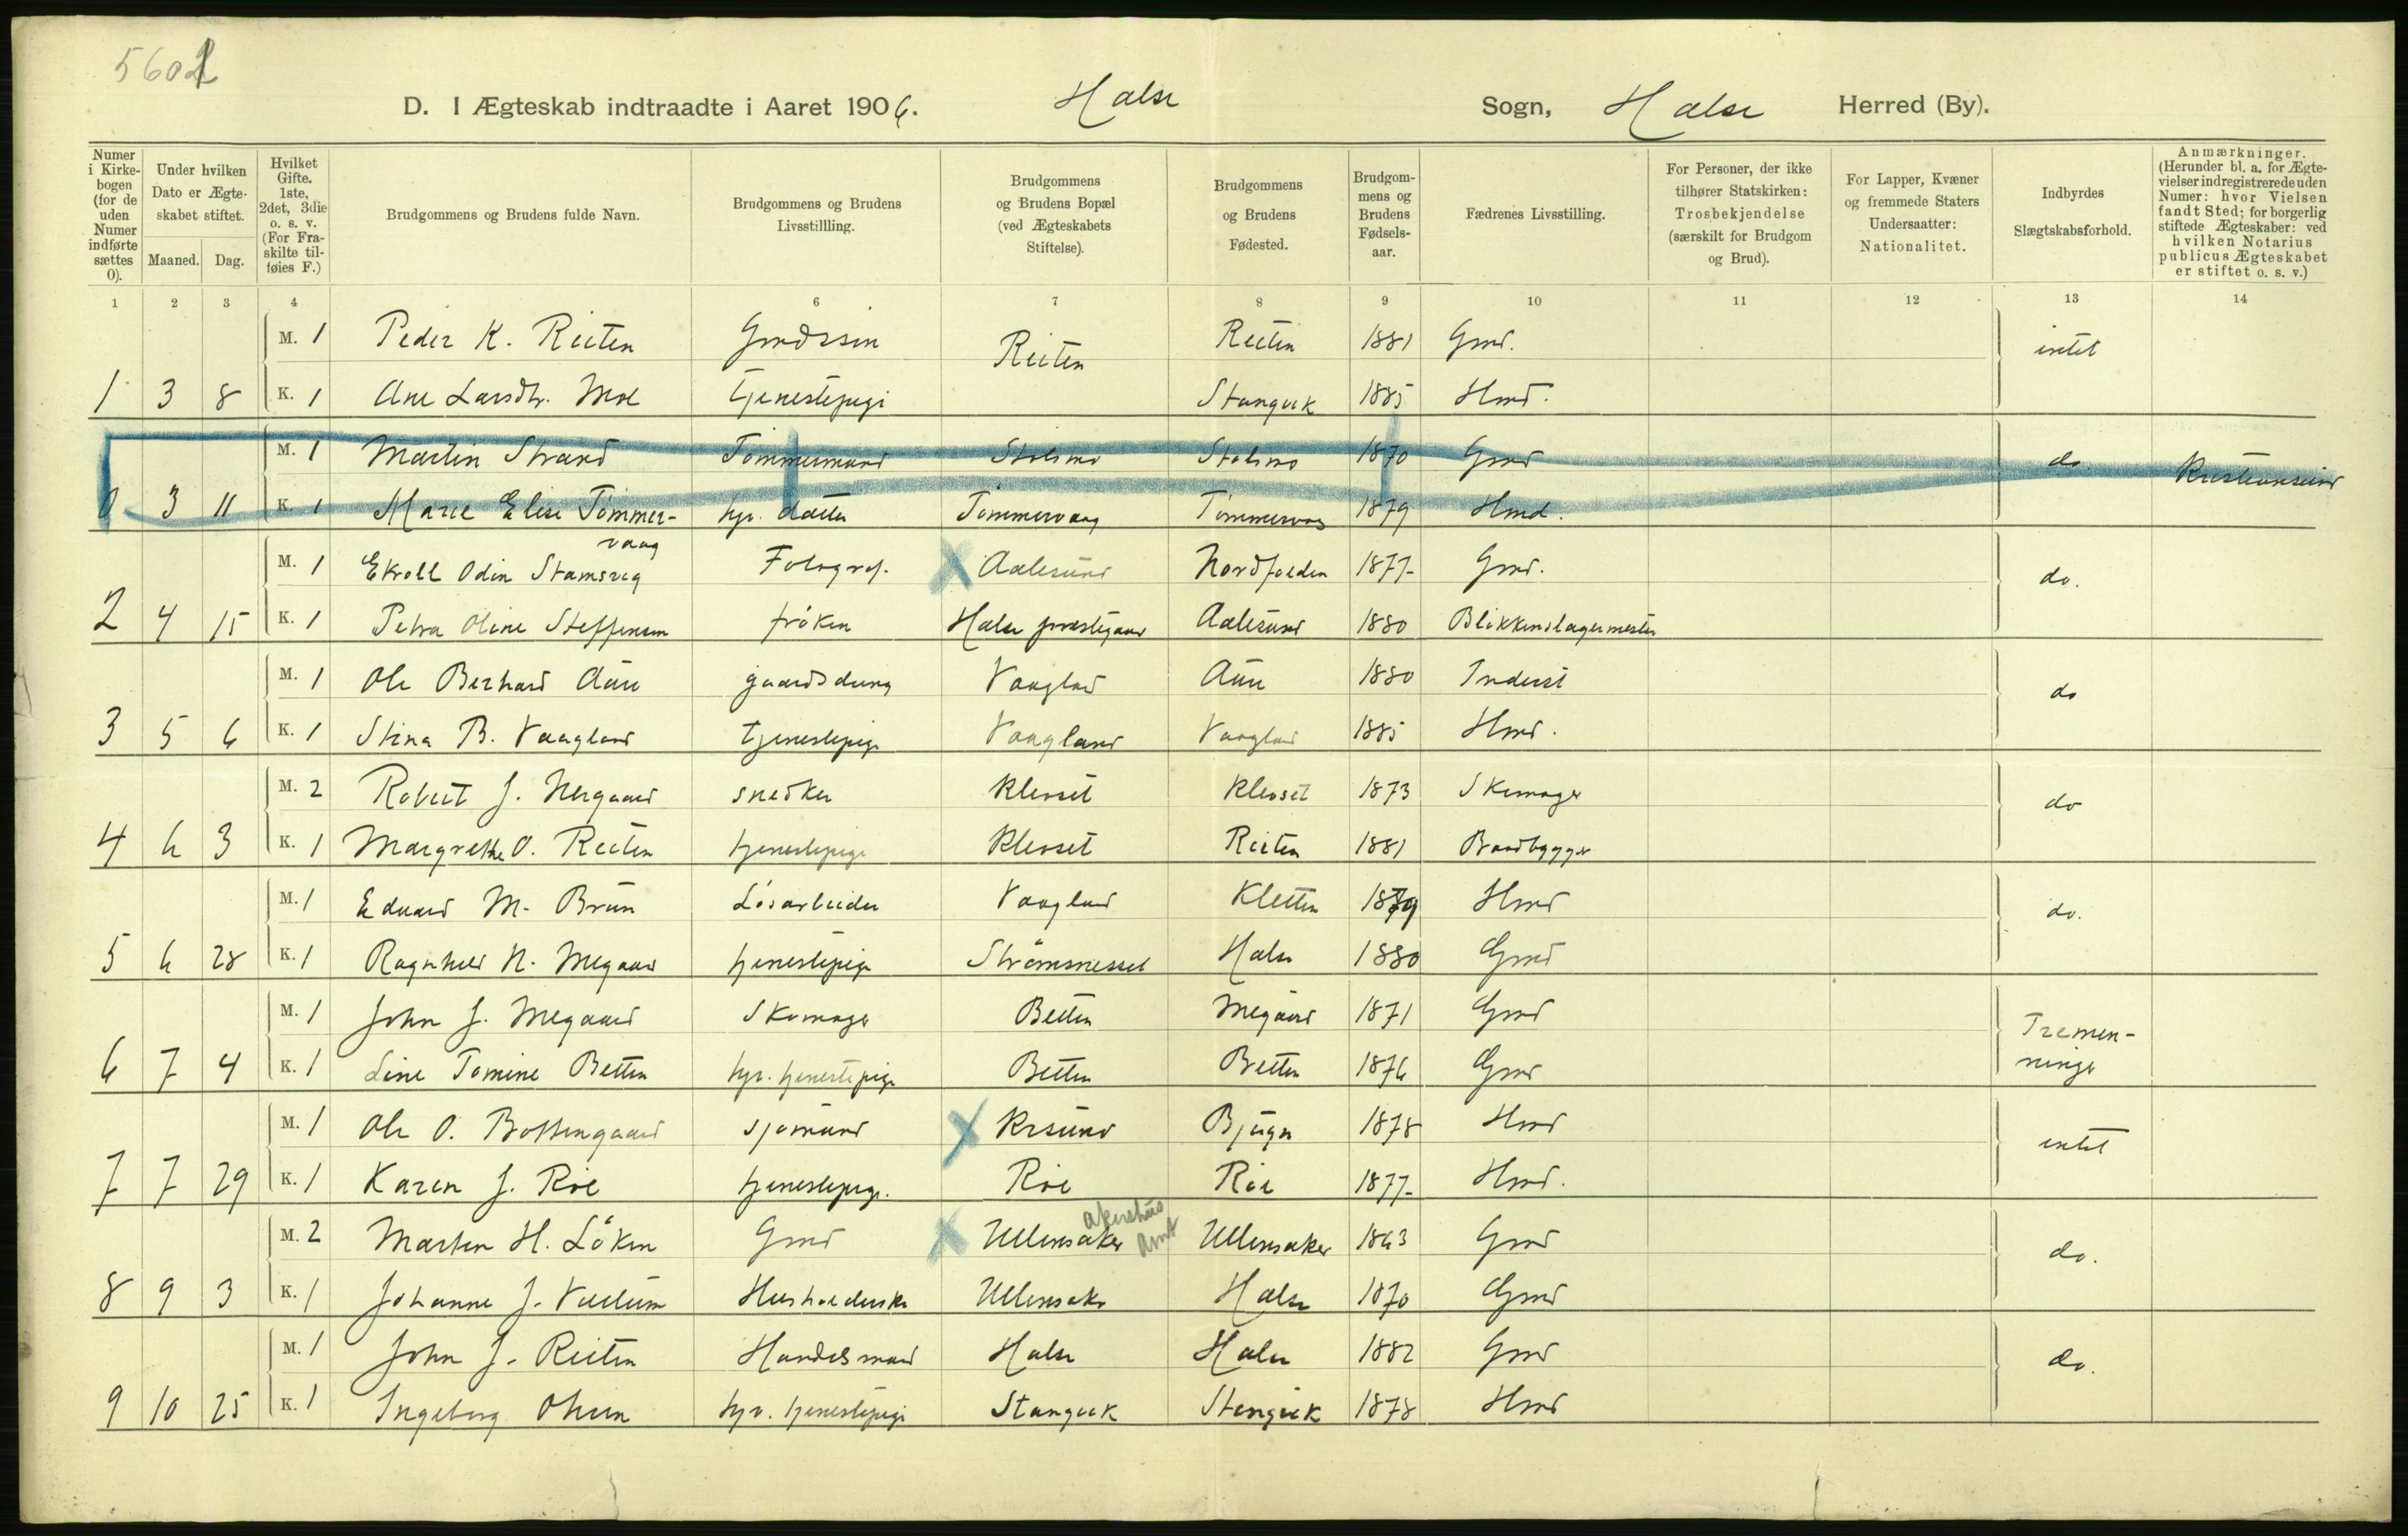 5601
D. I Ægteskab indtraadte i Aaret 1906. Halse Sogn, Halse Herred (By).
Numer i Kirkebogen (for de uden Numer indførte sættes 0).
Under hvilken Dato er Ægteskabet stiftet.
Maaned. Dag.
Hvilket Gifte. 1ste, 2det, 3die o. s. v. (For Fraskilte tilføies F.)
Brudgommens og Brudens fulde Navn.
Brudgommens og Brudens Livsstillling.
Brudgommens og Brudens Bopæl (ved Ægteskabets Stiftelse).
Brudgommens og Brudens Fødested.
Brudgommens og Brudens Fødselsaar.
Fædrenes Livsstilling.
For Personer, der ikke tilhører Statskirken: Trosbekjendelse (særskilt for Brudgom og Brud).
For Lapper, Kvæner og fremmede Staters Undersaatter: Nationalitet.
Indbyrdes Slægtskabsforhold.
Anmærkninger. (Herunder bl. a. for Ægtevielser indregistrerede uden Numer: hvor Vielsen fandt Sted; for borgerlig stiftede Ægteskaber: ved hvilken Notarius publicus Ægteskabet er stiftet o. s. v.)
1 2 3 4 6 7 8 9 10 11 12 13 14
M. 1 Peder K. Reiten Gmdssøn Reiten Reiten 1881 Gmd. intet
1 3 8 K. 1 Ane Larsdtr. Moe tjenestepige Stangvik 1885 Hmd.
M. 1 Martin Strand Tømmermand Stolsmo Stolsmo 1870 Gmd do. Kristiansund
0 3 11 K. 1 Marie Elise Tømmer- hjv. datter Tømmervaag Tømmervaag 1879 Hmd.
vaag
M. 1 Ekroll Odin Stamsvig Fotograf. X Aalesund Nordfolden 1877 Gmd. do.
2 4 15 K. 1 Petra Oline Steffensen frøken Halse prestegaard Aalesund 1880 Blikkenslagermester
M. 1 Ole Berhard Aune gaardsdreng Vaagland Aune 1880 Inderst do
3 5 6 K. 1 Stina B. Vaagland tjenestepige Vaagland Vaagland 1885 Hmd.
M. 2 Robert J. Nergaard snedker Klevset Klevset 1873 Skomager do
4 6 3 K. 1 Margrethe O. Reiten tjenestepige Klevset Reiten 1881 Baadbygger
M. 1 Edvard M. Brun Løsarbeider Vaagland Kletten 1879 Hmd do.
5 6 28 K. 1 Ragnhild N. Megaard tjenestepige Strømsnesset Halse 1880 Gmd
M. 1 John J. Megaard Skomager Betten Megaard 1871 Gmd Tremen-
6 7 4 K. 1 Line Tomine Betten hjv. tjenestepige Betten Betten 1876 Gmd ninge
M. 1 Ole O. Bottengaard sjømand X Krsund Bjugn 1878 Hmd intet
7 7 29 K. 1 Karen J. Roe tjenestepige. Roe Roe 1877 Hmd.
akershus amt
M. 2 Marten H. Løken Gmd X Ullensaker Ullensaker 1863 Gmd do.
8 9 3 K. 1 Johanne J. Husholderske Ullensaker Halse 1870 Gmd
M. 1 John J. Reiten Handelsmand Halse Halse 1882 Gmd do.
9 10 25 K. 1 Ingeborg hjv. tjenestepige Stangvik Stangvik 1878 Hmd